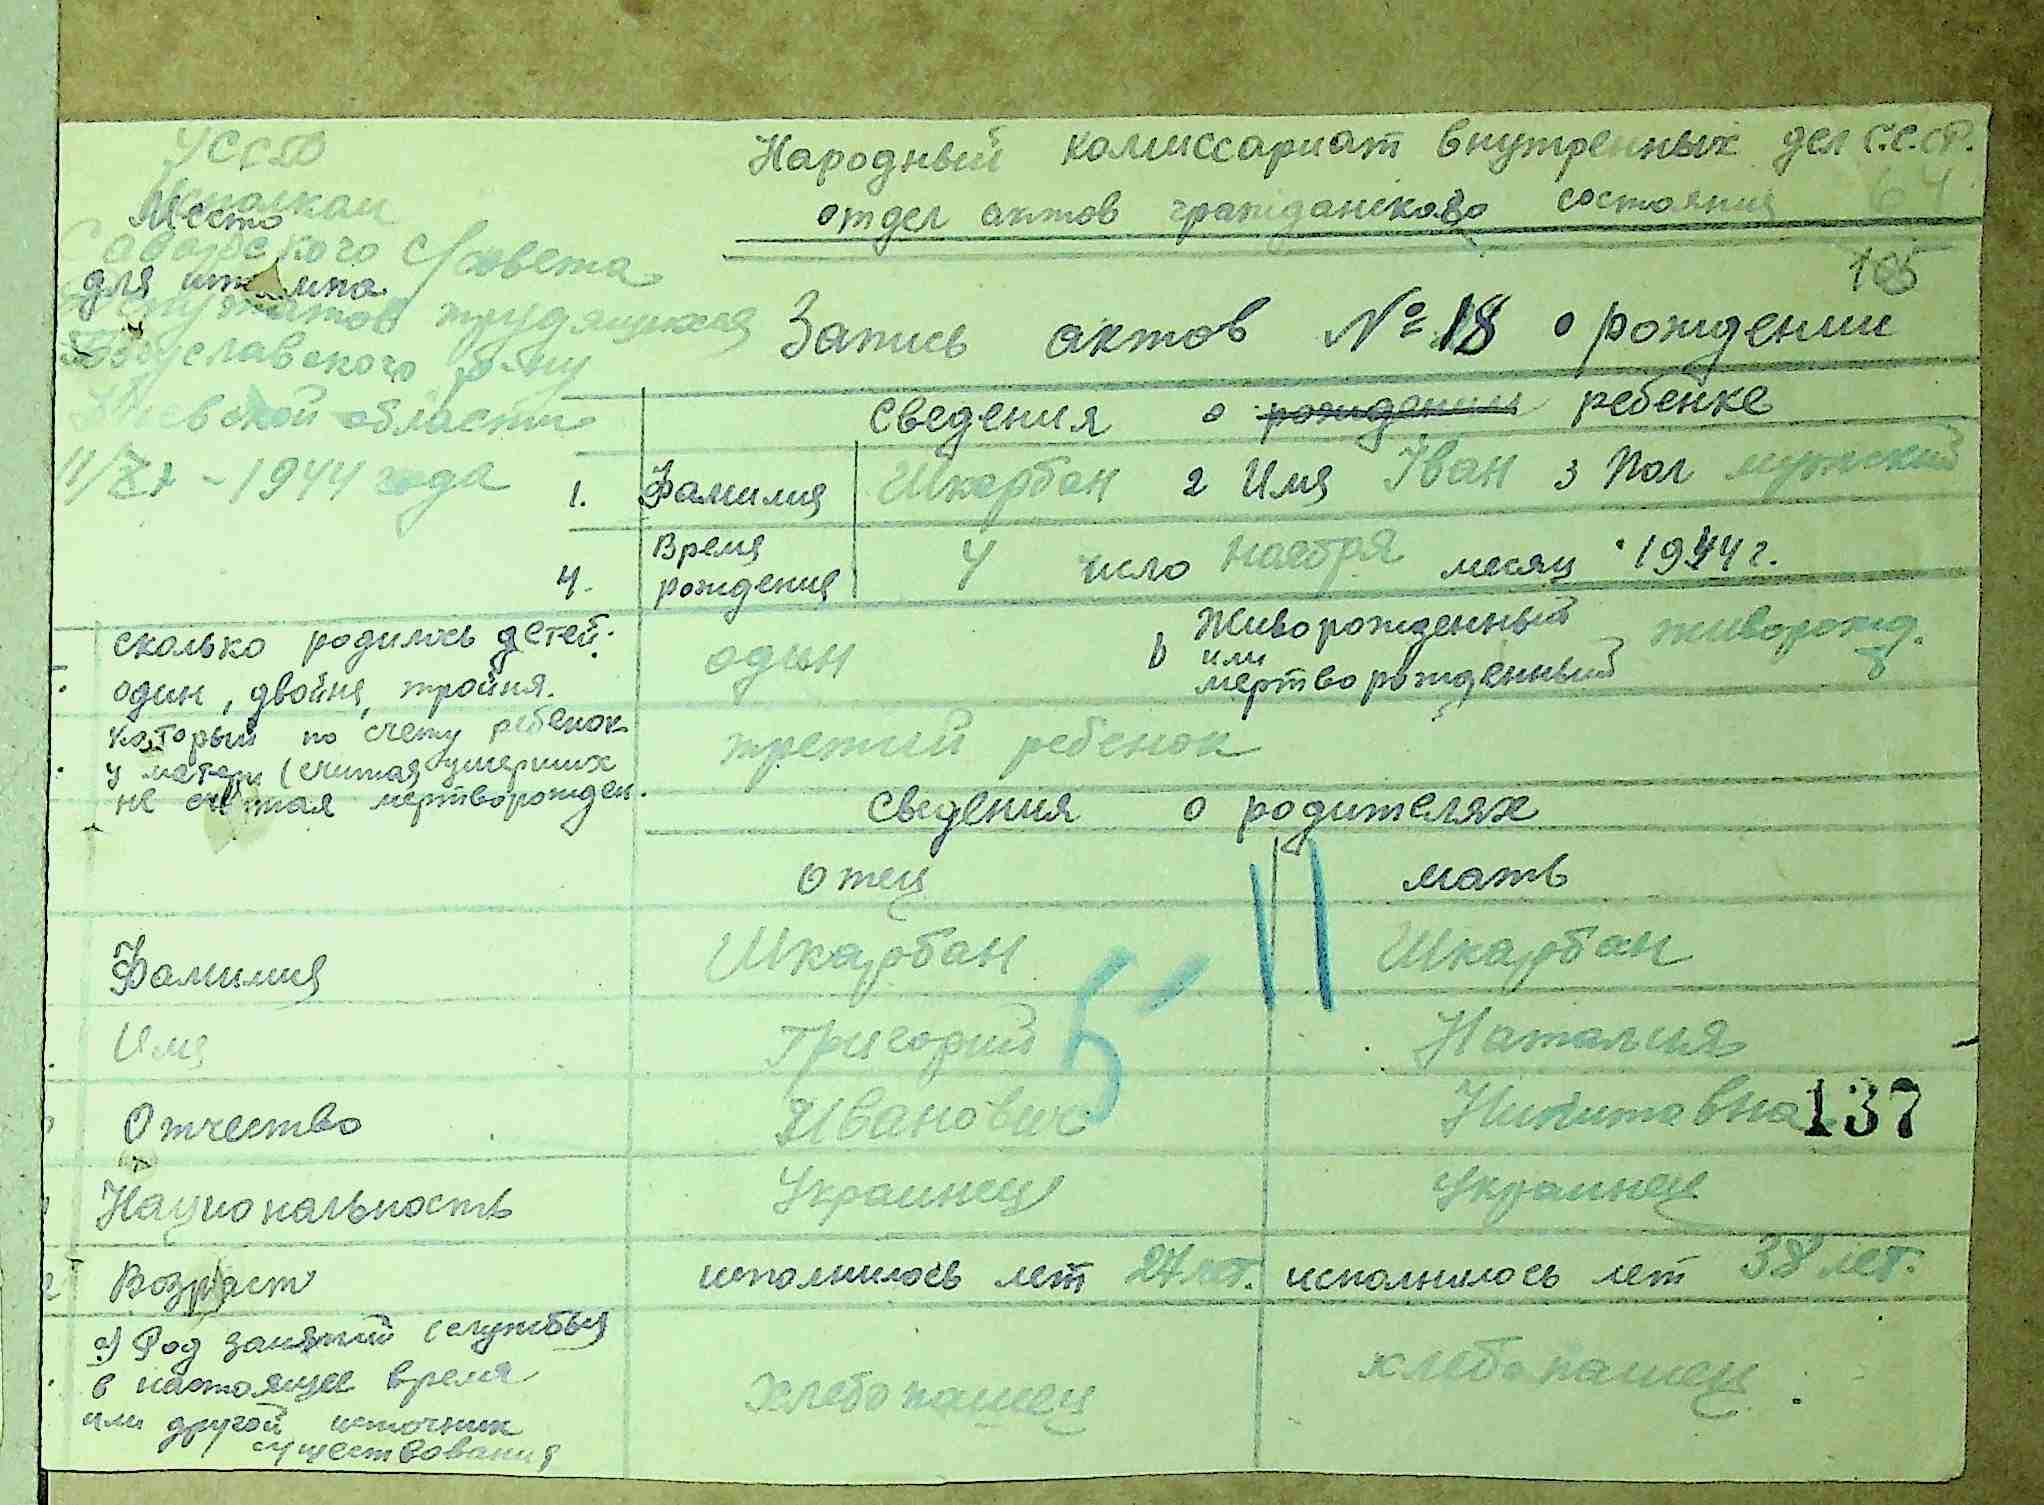 УССР
Исполком
Место
Саварского с/совета
для штампа
Депутатов трудящихся
Богуславского р-ну
Киевской области
11/XI - 1944 года
Народный комиссариат внутренных дел С.С.С.Р.
отдел актов гражданского состояния 64
165
Запись актов № 18 о рождении
сведения о рождении ребенке
1. Фамилия Шкарбан 2 Имя Іван 3 Пол мужский
4. Время рождения 4 число ноебря месяц 1944 г.
сколько родилось детей: один, двойня, тройня. один
Живорожденный или мертворожденный живорожд.
который по счету ребенок
у матери (считая умерших
не считая мертворожден. третий ребенок
сведения о родителях
Отец мать
Фамилия Шкарбан Шкарбан
Имя Григорий Наталия
Отчество Иванович Никитовна 137
Национальность Украинец Украинец
Возраст исполнилось лет 27 лет. исполнилось лет 38 лет.
а) Род занятий (службы
в настоящее время
или другой источник
существования хлебопашец хлебопашец
5 11